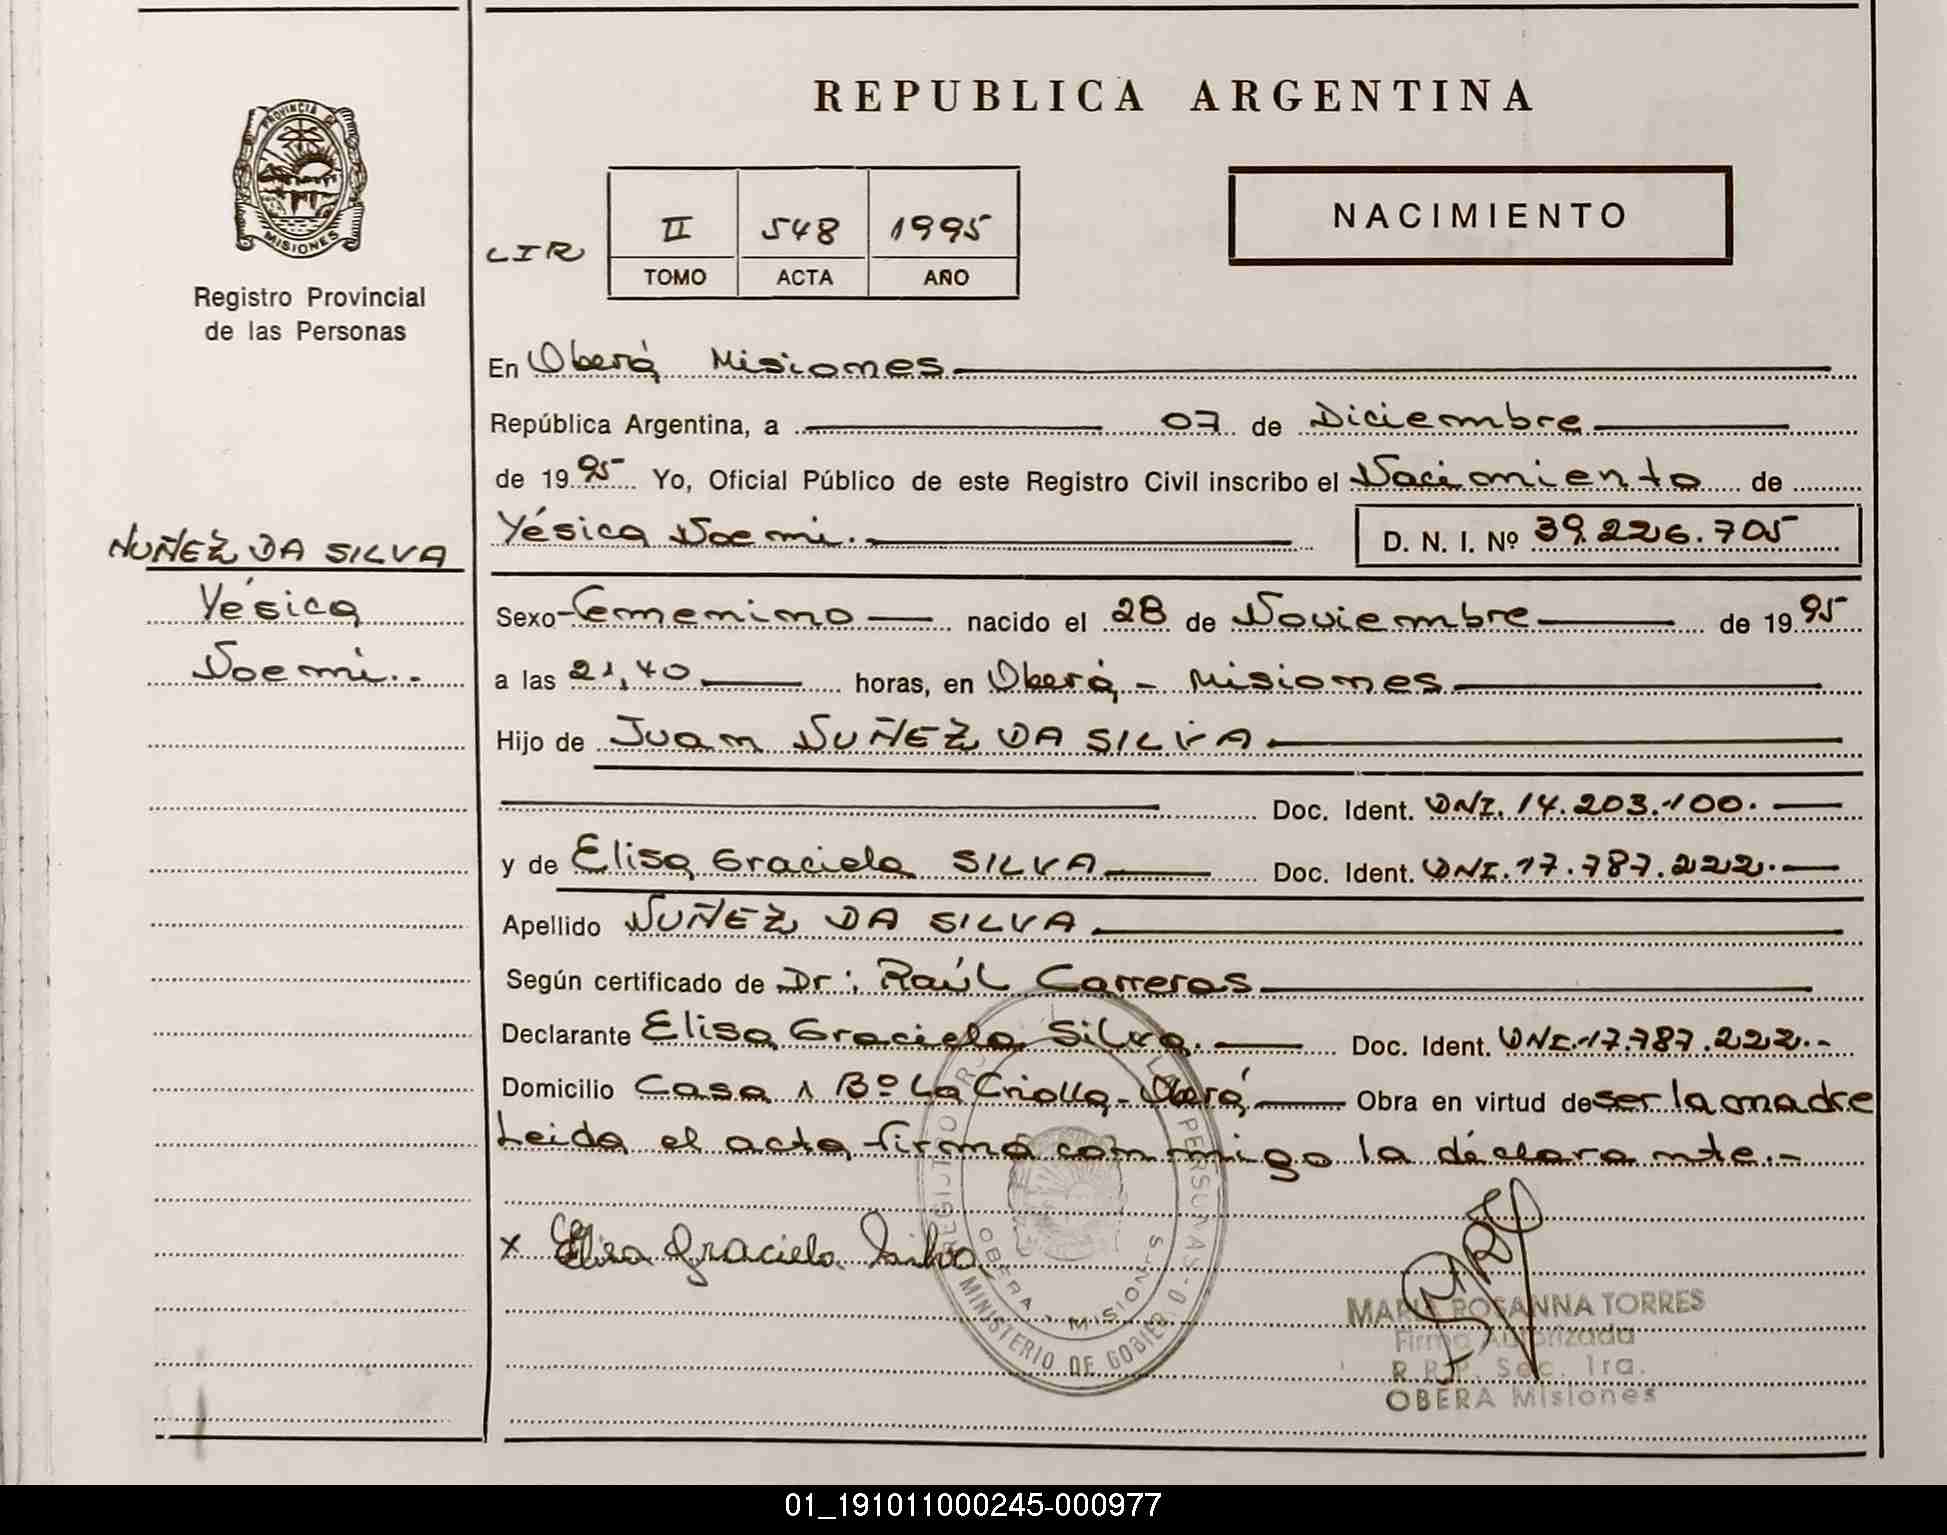 REPUBLICA ARGENTINA
PROVINCIA DE MISIONES
Registro Provincial
de las Personas
LIR
II 548 1995
TOMO ACTA AÑO
NACIMIENTO
En Oberá Misiones
República Argentina, a 07 de Diciembre
de 1995 Yo, Oficial Público de este Registro Civil inscribo el Nacimiento de
Yésica Noemi. D. N. I. Nº 39.226.705
NUÑEZ DA SILVA
Yésica
Noemi.-
Sexo Femenino nacido el 28 de Noviembre de 1995
a las 21,40 horas, en Oberá - Misiones
Hijo de Juan NUÑEZ DA SILVA
Doc. Ident. DNI. 14.203.100.
y de Elisa Graciela SILVA Doc. Ident. DNI. 17.787.222.
Apellido NUÑEZ DA SILVA
Según certificado de Dr: Raúl Carreras
Declarante Elisa Graciela Silva. Doc. Ident. DNI. 17.787.222.-
Domicilio Casa 1 Bº La Criolla - Oberá Obra en virtud de ser la madre
Leida el acta firma conmigo la declarante.-
x Elisa Graciela Silva
OBERA - MISIONES
MINISTERIO DE GOBIERNO
MARIA ROSANNA TORRES
Firma Autorizada
R.P.P. Sec. 1ra.
OBERA Misiones
01_191011000245-000977